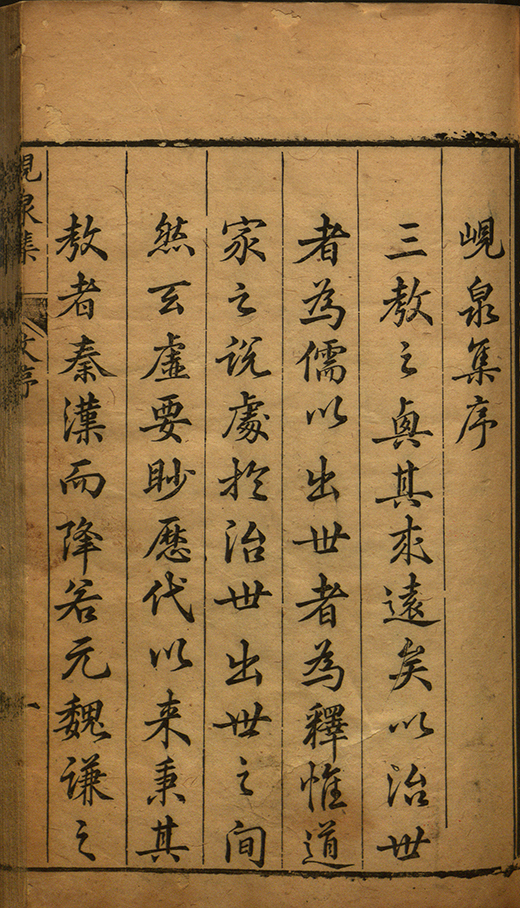 峴泉集序
三教之興其來遠矣以治世
者為儒以出世者為釋惟道
家之說處於治世出世之間
然玄虛要眇歷代以來秉其
教者秦漢而降若元魏謙之
峴泉集
序
一